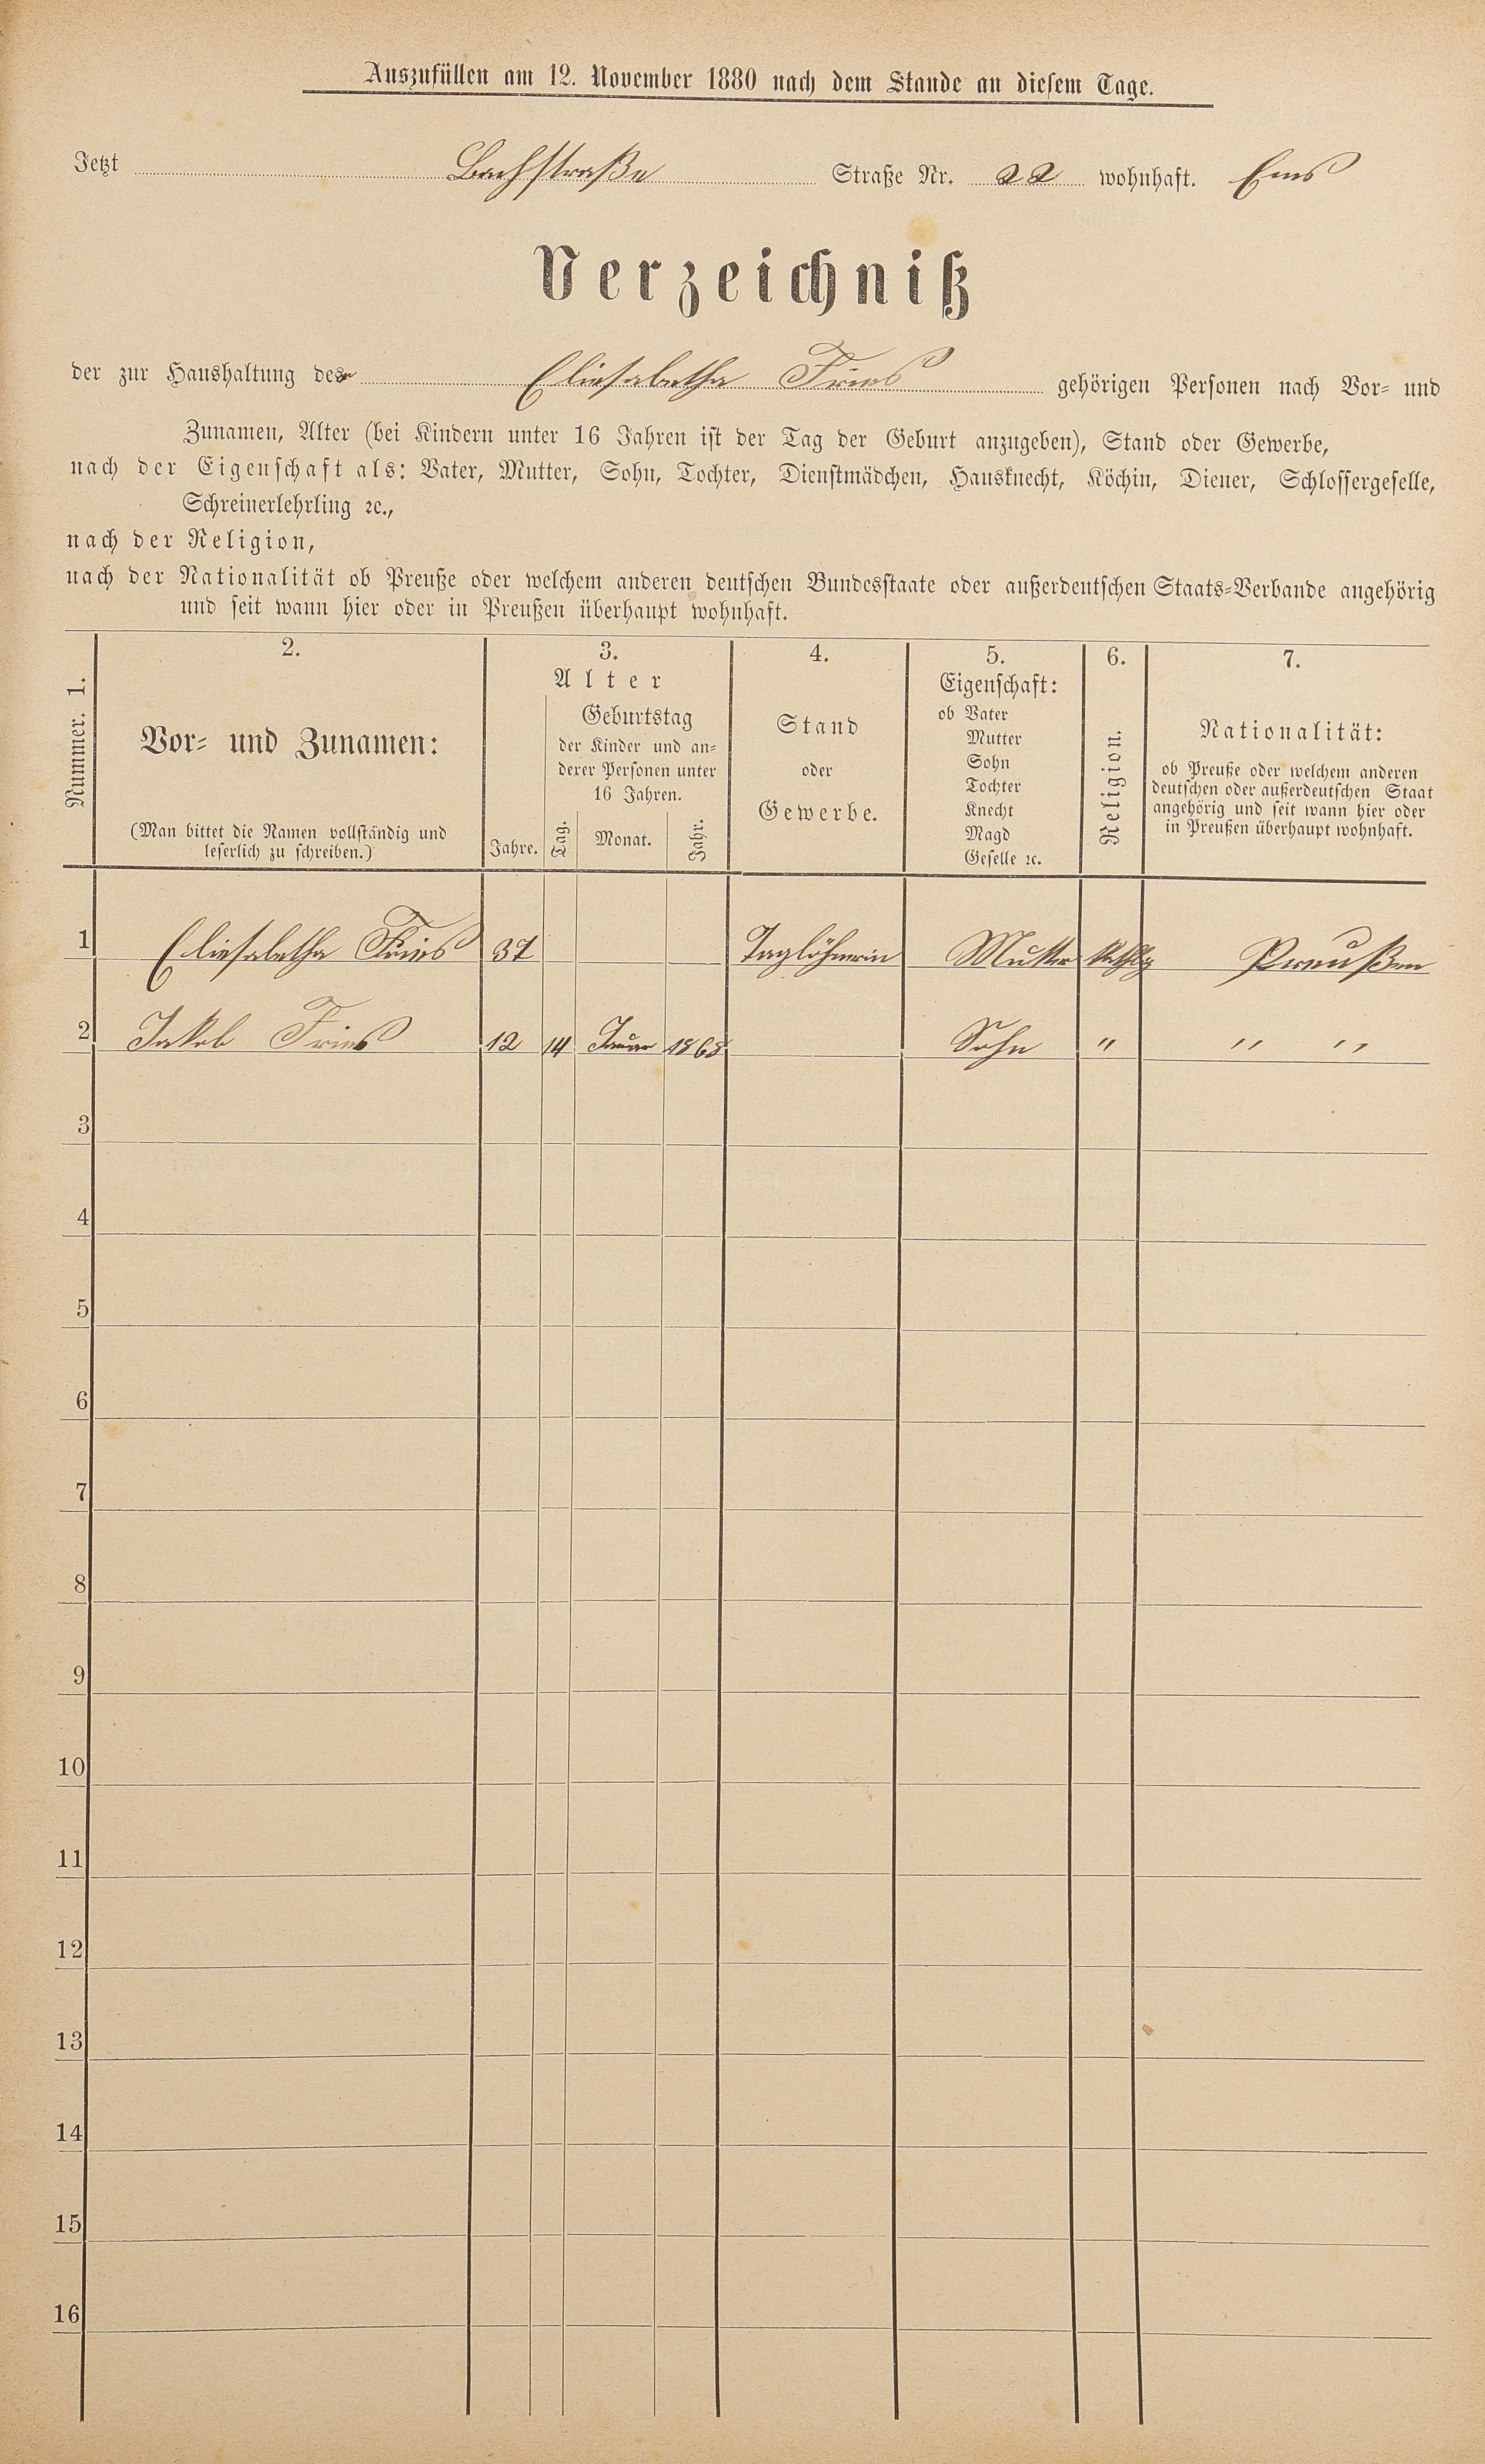 Auszufüllen am 12. November 1880 nach dem Stande an diesem Tage.
Jetzt Bachstraße Straße Nr. 22 wohnhaft. Ems
Verzeichniß
der zur Haushaltung der Eliesabetha Fries gehörigen Personen nach Vor- und
Zunamen, Alter (bei Kindern unter 16 Jahren ist der Tag der Geburt anzugeben), Stand oder Gewerbe,
nach der Eigenschaft als: Vater, Mutter, Sohn, Tochter, Dienstmädchen, Hausknecht, Köchin, Diener, Schlossergeselle,
Schreinerlehrling ꝛc.,
nach der Religion,
nach der Nationalität ob Preuße oder welchem anderen deutschen Bundesstaate oder außerdeutschen Staats-Verbande angehörig
und seit wann hier oder in Preußen überhaupt wohnhaft.
Nummer. 1.
2.
Vor- und Zunamen:
(Man bittet die Namen vollständig und
leserlich zu schreiben.)
3.
Alter
Jahre.
Geburtstag
der Kinder und an-
derer Personen unter
16 Jahren.
Tag. Monat. Jahr.
4.
Stand
oder
Gewerbe.
5.
Eigenschaft:
ob Vater
Mutter
Sohn
Tochter
Knecht
Magd
Geselle ꝛc.
6.
Religion.
7.
Nationalität:
ob Preuße oder welchem anderen
deutschen oder außerdeutschen Staat
angehörig und seit wann hier oder
in Preußen überhaupt wohnhaft.
1 Eliesabetha Fries 37 Taglöhnerin Mutter Preußen
2 Jakob Fries 12 14 Januar 1868 Sohn " " "
3
4
5
6
7
8
9
10
11
12
13
14
15
16